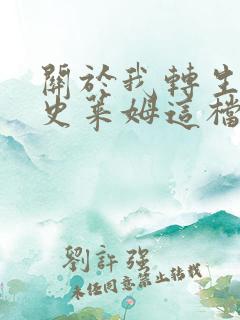 關於我轉生
史萊姆這檔
劉許强
未经同意禁止转载